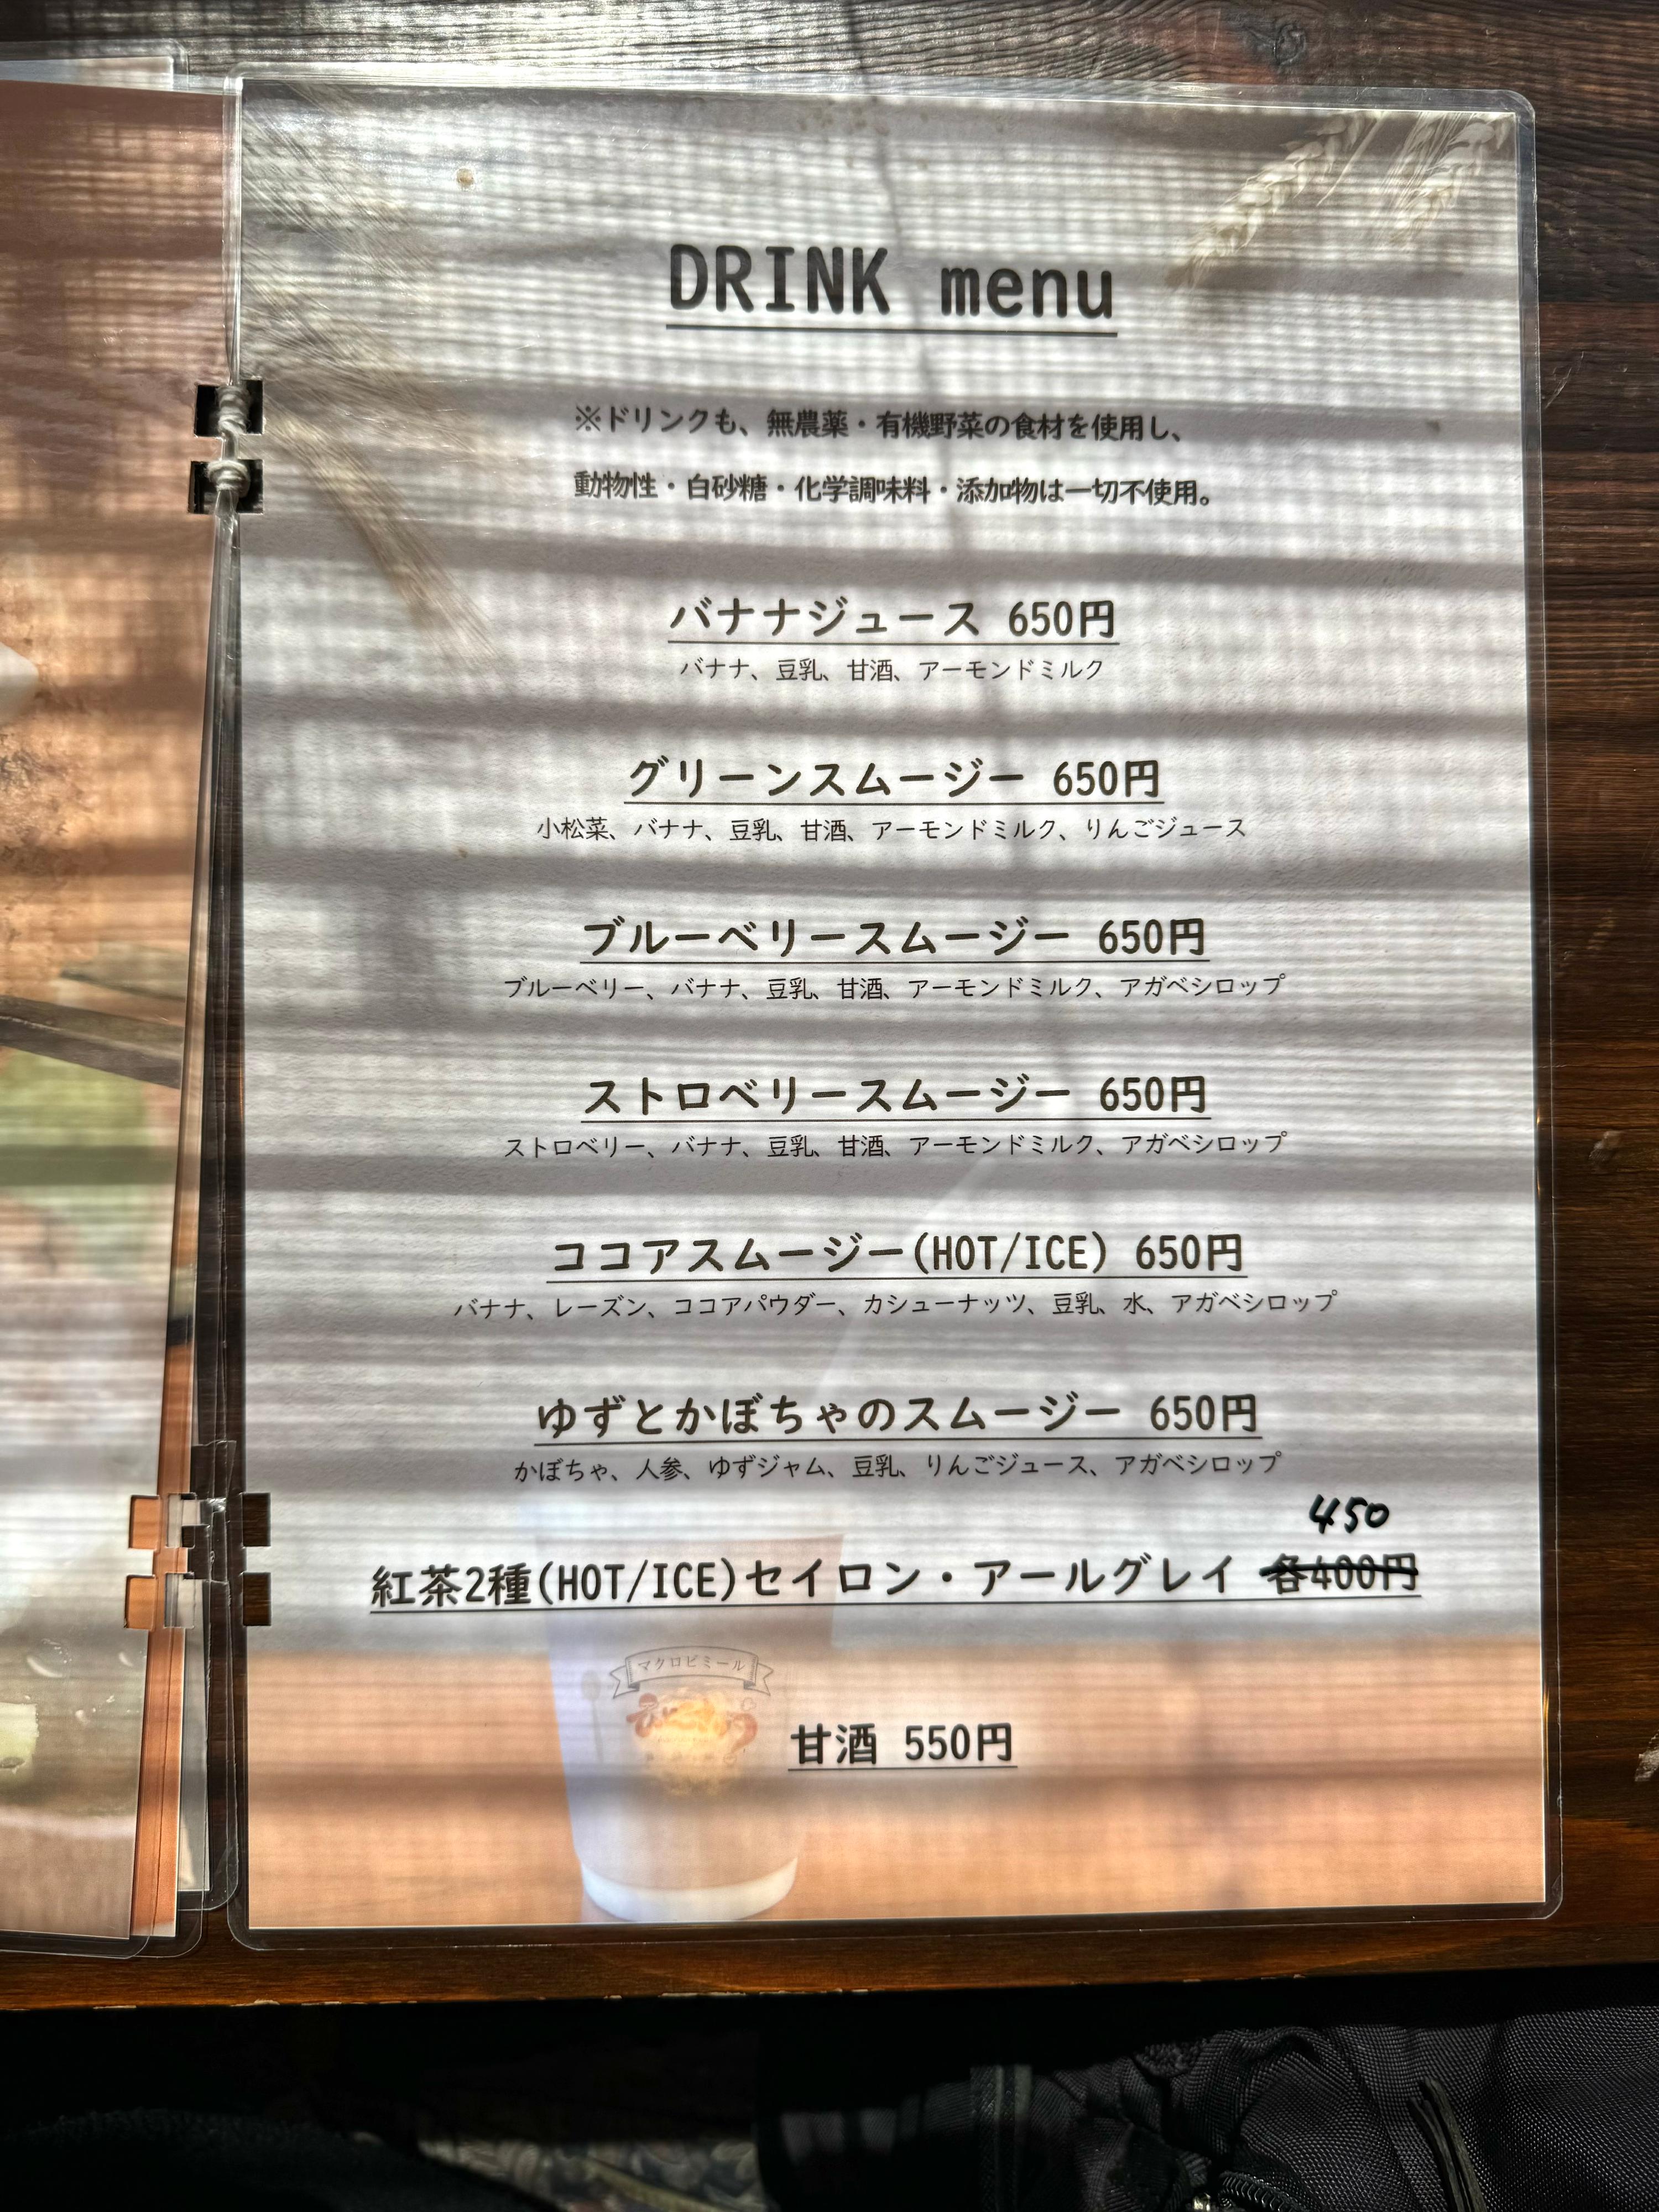 DRINK menu
※ドリンクも、無農薬・有機野菜の食材を使用し、
動物性・白砂糖・化学調味料・添加物は一切不使用。
バナナジュース 650円
バナナ、豆乳、甘酒、アーモンドミルク
グリーンスムージー 650円
小松菜、バナナ、豆乳、甘酒、アーモンドミルク、りんごジュース
ブルーベリースムージー 650円
ブルーベリー、バナナ、豆乳、甘酒、アーモンドミルク、アガベシロップ
ストロベリースムージー 650円
ストロベリー、バナナ、豆乳、甘酒、アーモンドミルク、アガベシロップ
ココアスムージー(HOT/ICE) 650円
バナナ、レーズン、ココアパウダー、カシューナッツ、豆乳、水、アガベシロップ
ゆずとかぼちゃのスムージー 650円
かぼちゃ、人参、ゆずジャム、豆乳、りんごジュース、アガベシロップ
450
紅茶2種(HOT/ICE)セイロン・アールグレイ 各400円
マクロビミール
甘酒 550円